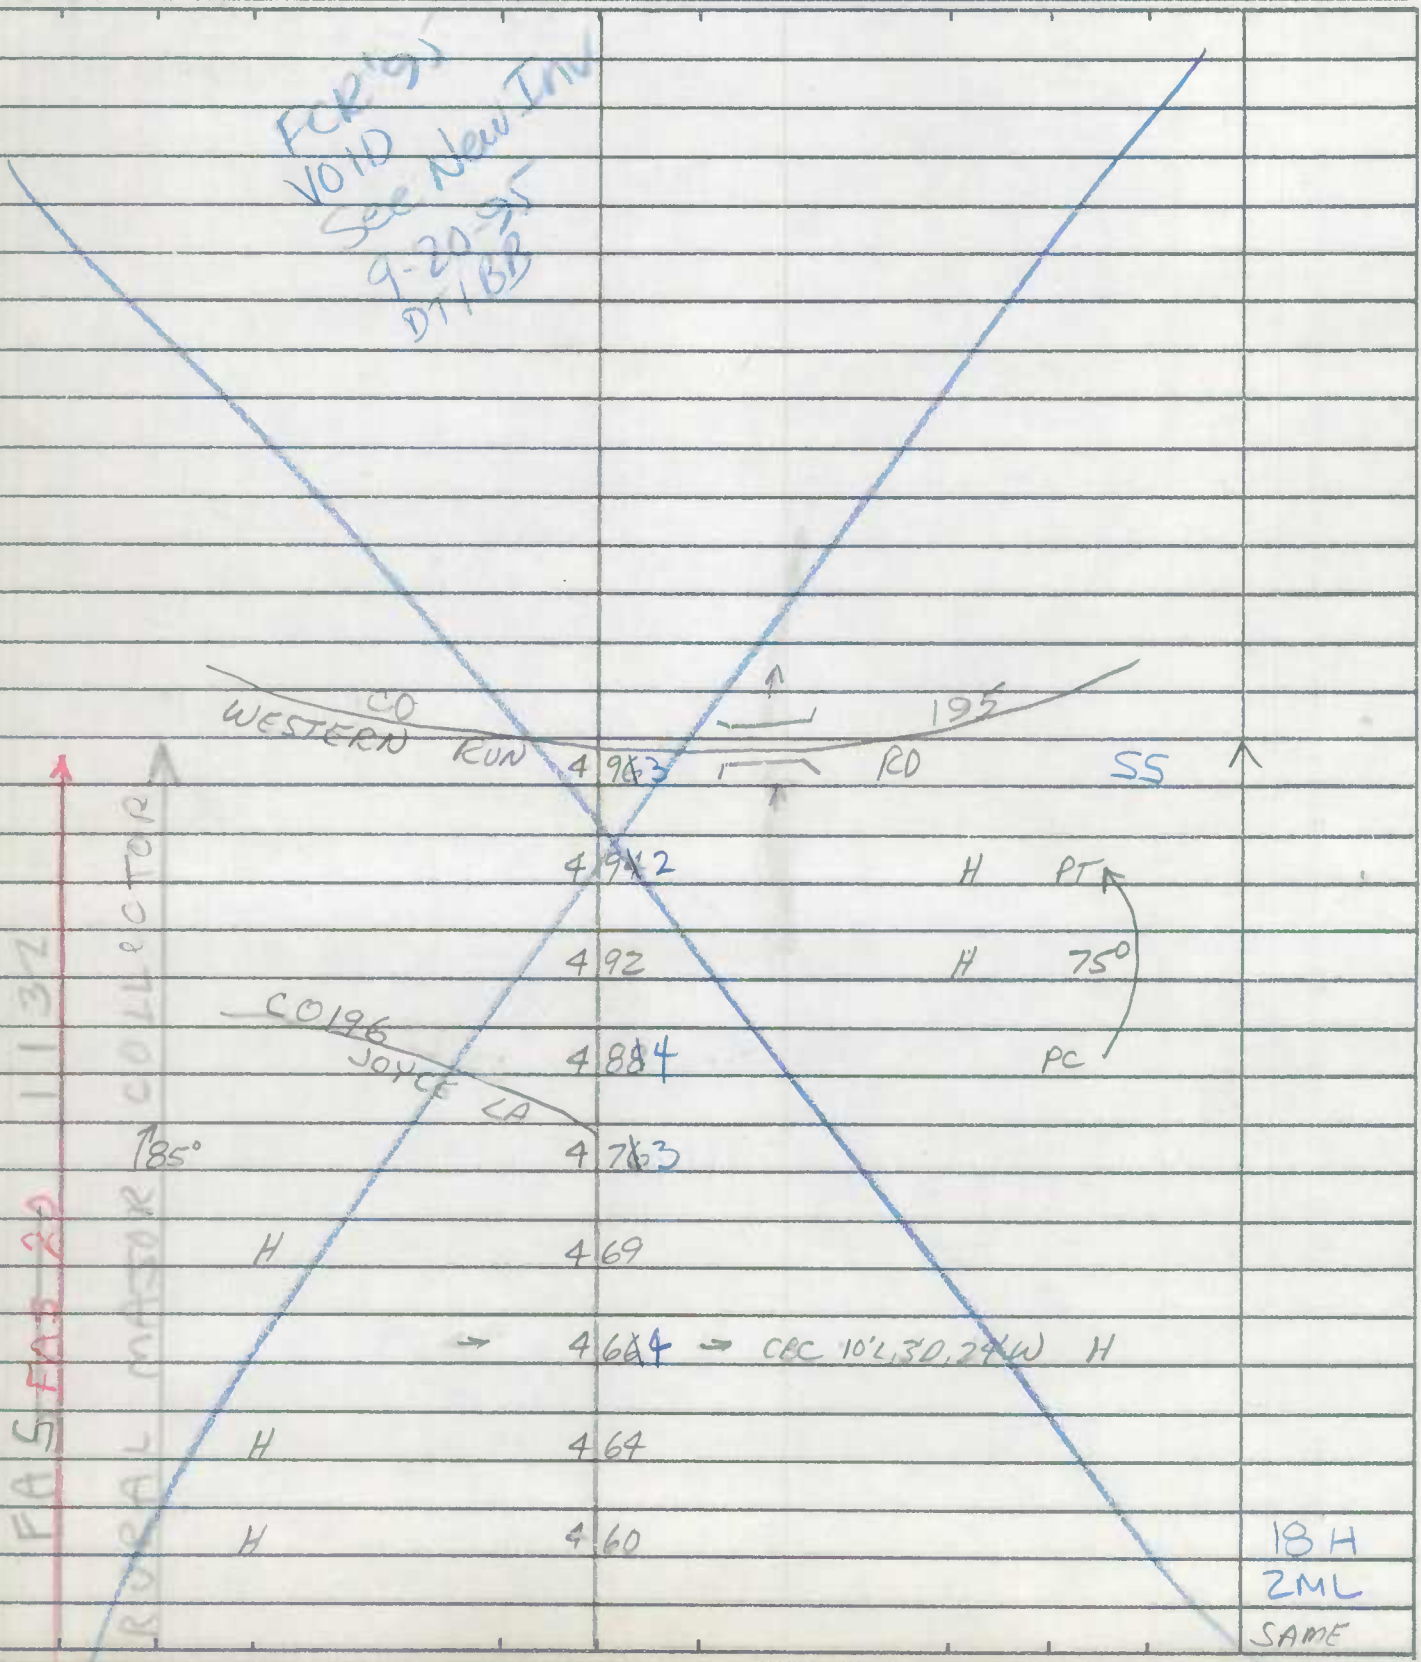 FCR '95
VOID
See New Inv
9-20-95
DT/BB
CO 195
WESTERN RUN RD
4 963 SS
4 942 H PT
4 92 H 75°
CO 196
JOYCE LA
4 884 PC
85°
4 763
H 4 69
→ 4 664 → CBC 10'L, 3'D, 24'W H
H 4 64
H 4 60
18 H
2ML
SAME
FAS 1132
FAS 20
RURAL MAJOR COLLECTOR